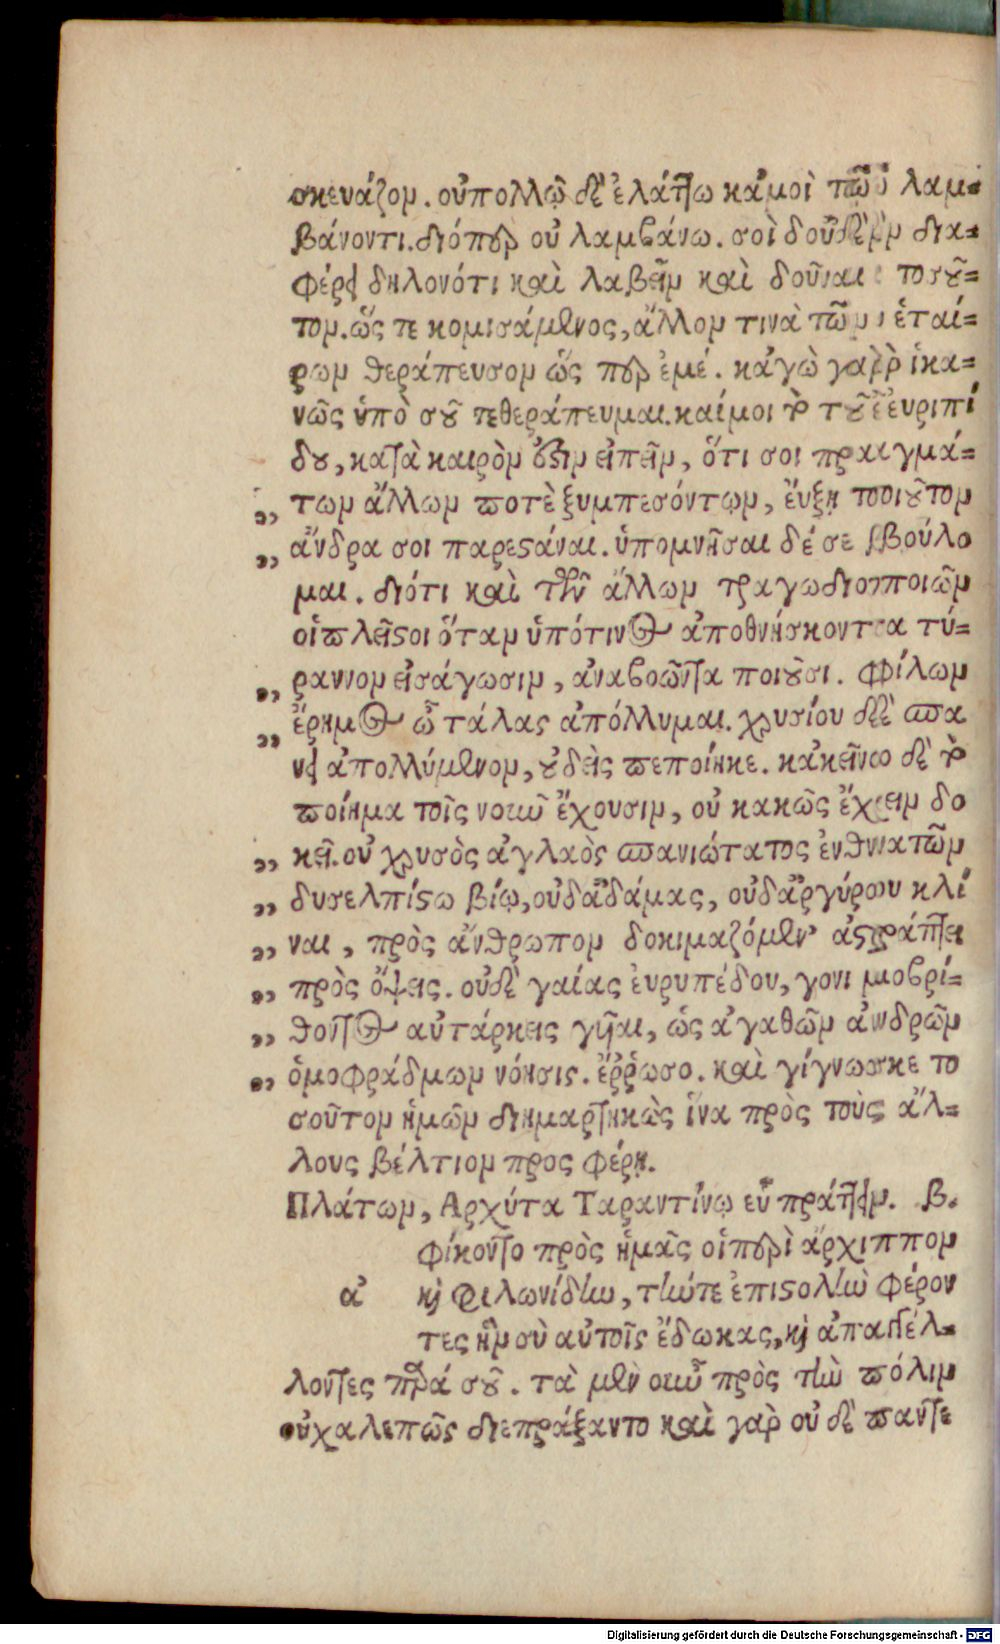 σκευάζομ. οὐπολλῷ δὲ ἐλάττω κἀμοὶ τῷ οὐ λαμ-
βάνοντι. διόπερ οὐ λαμβάνω. σοὶ δ' οὐδὲμ δια-
φέρει δηλονότι καὶ λαβεῖμ καὶ δοῦναι τοσοῦ-
τομ. ὥς τε κομισάμενος, ἄλλομ τινὰ τῶμ ἑταί-
ρωμ θεράπευσομ ὥς περ ἐμέ. κἀγὼ γὰρ ἱκα-
νῶς ὑπὸ σοῦ τεθεράπευμαι. καίμοι τὸ τοῦ εὐριπί
δου, κατὰ καιρόμ ὅστιμ εἰπεῖμ, ὅτι σοι πραγμά-
„ τωμ ἄλλωμ ποτὲ ξυμπεσόντωμ, ἔυξῃ τοιοῦτομ
„ ἄνδρα σοι παρεστάναι. ὑπομνῆσαι δέ σε βούλο
μαι. διότι καὶ τῶν ἄλλωμ τραγωδιοποιῶμ
οἱ πλεῖστοι ὅταμ ὑπότινος ἀποθνήσκοντα τύ-
„ ραννομ εἰσάγωσιμ, ἀναβοῶντα ποιοῦσι. Φίλωμ
„ ἔρημος ὦ τάλας ἀπόλλυμαι. χρυσίου δὲ σπα
νει ἀπολλύμενομ, οὐδεὶς πεποίηκε. κἀκεῖνο δὲ τὸ
ποίημα τοῖς νοιῦ ἔχουσιμ, οὐ κακῶς ἔχειμ δο
„ κεῖ. οὐ χρυσὸς ἀγλαὸς σπανιώτατος ἐνθνατῶμ
„ δυσελπίστω βίῳ, οὐδ' ἀδάμας, οὐδ' ἀργύρου κλί
„ ναι, πρὸς ἄνθρωπομ δοκιμαζόμεν' ἀστράπτει
„ πρὸς ὄψεις. οὐδὲ γαίας ἐυρυπέδου, γονιμοβρί-
„ θοντος αὐτάρκεις γῆαι, ὡς ἀγαθῶμ ἀνδρῶμ
„ ὁμοφράδμωμ νόησις. ἔῤῥωσο. καὶ γίγνωσκε το
σοῦτομ ἡμῶμ διημαρτηκὼς ἵνα πρὸς τοὺς ἄλ-
λους βέλτιομ προς φέρῃ.
Πλάτωμ, Αρχύτα Ταραντίνῳ εὖ πράττειμ. β.
φίκοντο πρὸς ἡμᾶς οἱ περὶ ἄρχιππομ
ἀ καὶ Φιλωνίδηω, τήωτε ἐπιστολὴω φέρον
τες ἣμ σὺ αὐτοῖς ἔδωκας, καὶ ἀπαγγέλ-
λοντες παρά σοῦ. τὰ μὲν οιῦ πρὸς τὴω πόλιμ
οὐχαλεπῶς διεπράξαντο καὶ γὰρ οὐ δὲ παντε
Digitalisierung gefördert durch die Deutsche Forschungsgemeinschaft - DFG